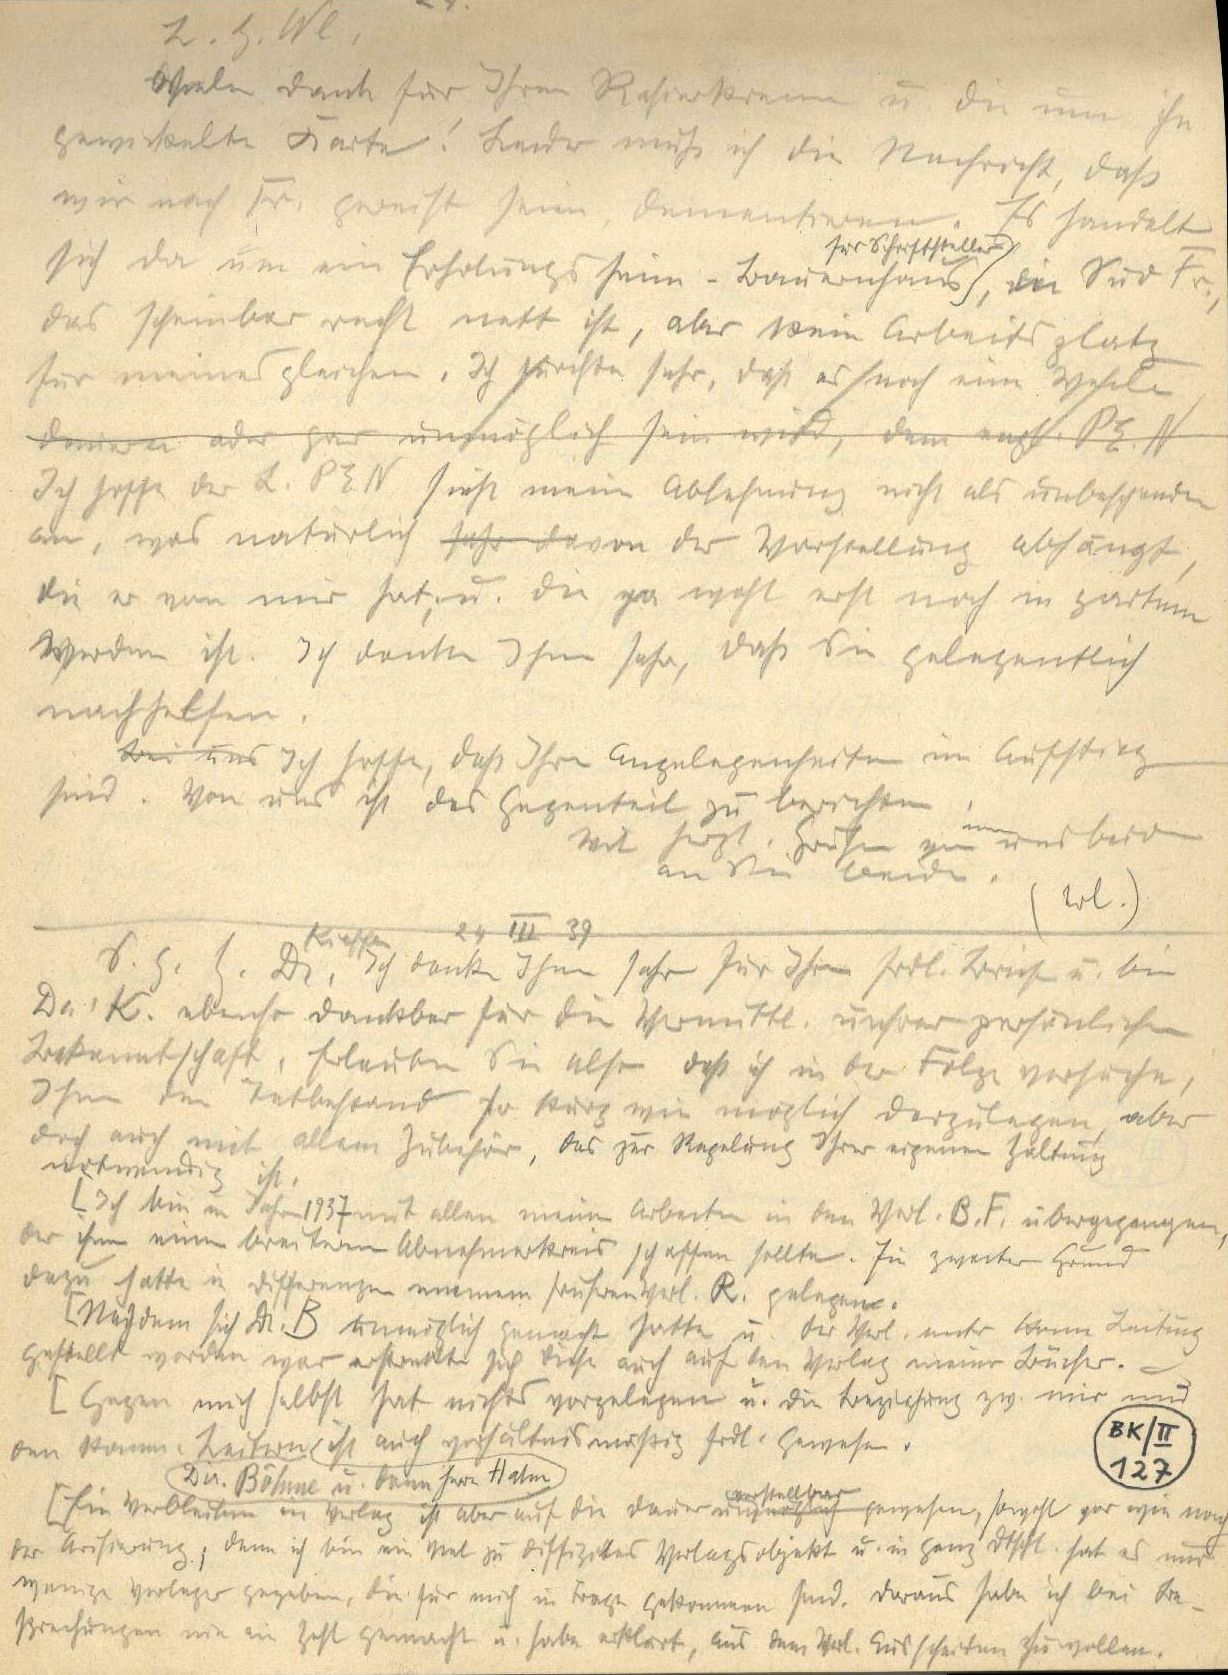 L. H. Wl.,
Vielen Dank für Ihren Rasierkreme u. die um ihn
gewickelte Karte! Leider muß ich die Nachricht, daß
wir nach Fr. gereist seien, dementieren. Es handelt
sich da um ein Erholungsheim - Bauernhaus (für Schriftsteller), in Süd Fr.,
das scheinbar recht nett ist, aber kein Arbeitsplatz
für meinesgleichen. Ich fürchte sehr, daß es noch eine Weile
dauern oder gar unmöglich sein wird, dem engl. PEN
Ich hoffe der L. PEN sieht meine Ablehnung nicht als unbescheiden
an, was natürlich sehr davon der Vorstellung abhängt,
die er von mir hat, u. die ja wohl erst noch in zartem
Werden ist. Ich danke Ihnen sehr, daß Sie gelegentlich
nachhelfen.
Bei uns Ich hoffe, daß Ihre Angelegenheiten im Aufstieg
sind. Von uns ist das Gegenteil zu berichten.
Mit herzl. Grüßen von uns beiden
an Sie beide.
(Erl.)
24 III 39
S. g. H. Dr., Ich danke Ihnen sehr für Ihren frdl. Brief u. bin
Dr. K. ebenso dankbar für die Vermittl. unserer persönlichen
Bekanntschaft. Erlauben Sie also daß ich in der Folge versuche,
Ihnen den Tatbestand so kurz wie möglich darzulegen, aber
doch auch mit allem Zubehör, das zur Regelung Ihrer eigenen Haltung
notwendig ist.
[Ich bin im Jahre 1937 mit allen meinen Arbeiten in den Verl. B.F. übergegangen,
der ihnen einen breiteren Abnehmerkreis schaffen sollte. Ein zweiter Grund
dazu hatte in Differenzen m meinem früheren Verl. R. gelegen.
[Nachdem sich Dr. B unmöglich gemacht hatte u. der Verl. unter komm Leitung
gestellt worden war erstreckte sich diese auch auf den Verlag meiner Bücher.
[Gegen mich selbst hat nichts vorgelegen u. die Beziehung zw. mir und
den komm. Leitern ist auch verhältnismäßig frdl. gewesen.
Dir. Böhme u. dann Herr Halm
[Ein Verbleiben im Verlag ist aber auf die Dauer unmöglich vorstellbar gewesen, sowohl vor wie nach
der Arisierung; denn ich bin ein viel zu diffiziles Verlagsobjekt u. in ganz Dtschl. hat es nur
wenige Verleger gegeben, die für mich in Frage gekommen sind. Daraus habe ich bei Be-
sprechungen nie ein Hehl gemacht u. habe erklärt, aus dem Verl. ausscheiden zu wollen.
BK/II
127